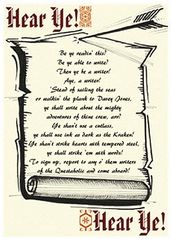 Hear Ye!
Be ye readin' this!
Be ye able to write?
Then ye be a writer!
Aye, a writer!
'Stead of sailing the seas
or walkin' the plank to Davey Jones,
ye shall write about the mighty
adventures of thine crew, arr!
Ife shan't use a cutlass,
ye shall use ink as dark as the Kraken!
Ife shan't strike hearts with tempered steel,
ye shall strike 'em with words!
To sign up, report to any o' them writers
of the Questaholic and come aboard!
Hear Ye!